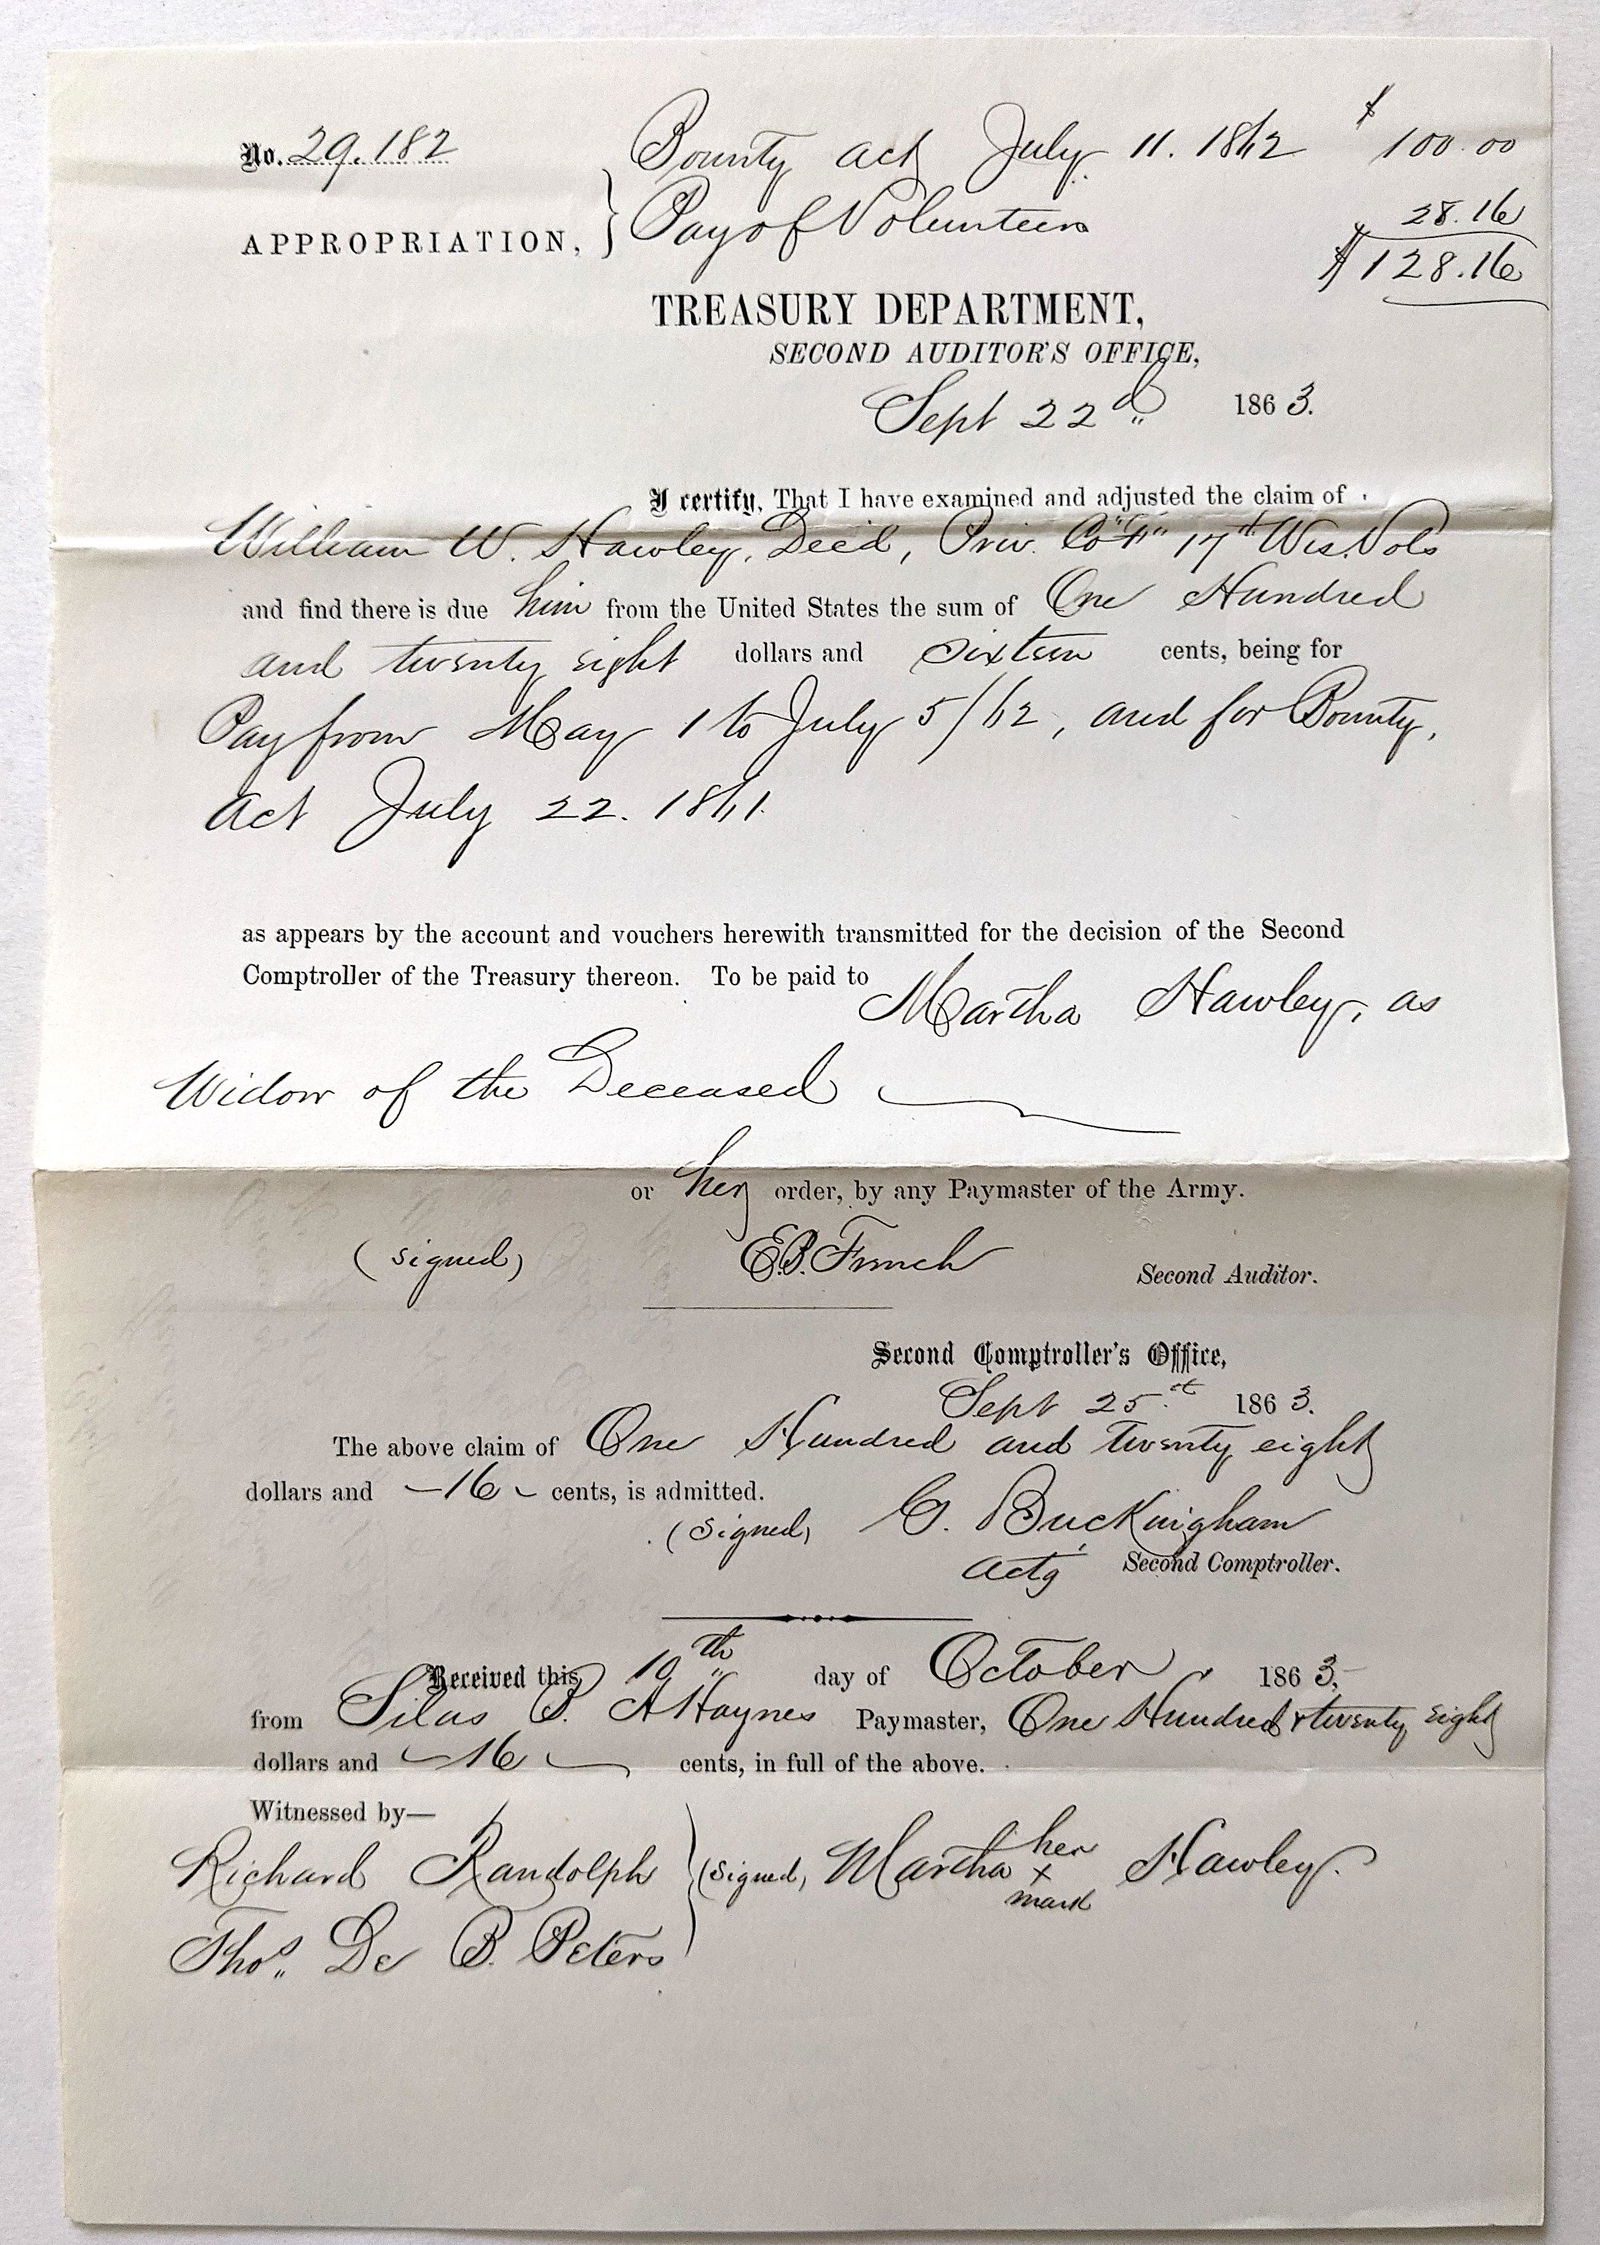 No. 29.182
Bounty act July 11. 1862 $ 100.00
APPROPRIATION, } Pay of Volunteers 28.16
$128.16
TREASURY DEPARTMENT,
SECOND AUDITOR'S OFFICE,
Sept 22d 1863.
I certify, That I have examined and adjusted the claim of
William W. Hawley, Decd, Priv. Co 17th Wis. Vols
and find there is due him from the United States the sum of One Hundred
and twenty eight dollars and sixteen cents, being for
Pay from May 1 to July 5/62, and for Bounty,
act July 22. 1861.
as appears by the account and vouchers herewith transmitted for the decision of the Second
Comptroller of the Treasury thereon. To be paid to Martha Hawley, as
Widow of the Deceased
or her order, by any Paymaster of the Army.
(signed) E.B. French Second Auditor.
Second Comptroller's Office,
Sept 25 1863.
The above claim of One Hundred and twenty eight
dollars and –16– cents, is admitted.
(Signed) Buckingham
actg Second Comptroller.
Received this 10th day of October 1863,
from Silas Haynes Paymaster, One Hundred & twenty eight
dollars and –16– cents, in full of the above.
Witnessed by—
Richard Randolph } (signed) Martha her x mark Hawley.
Thos. De B. Peters